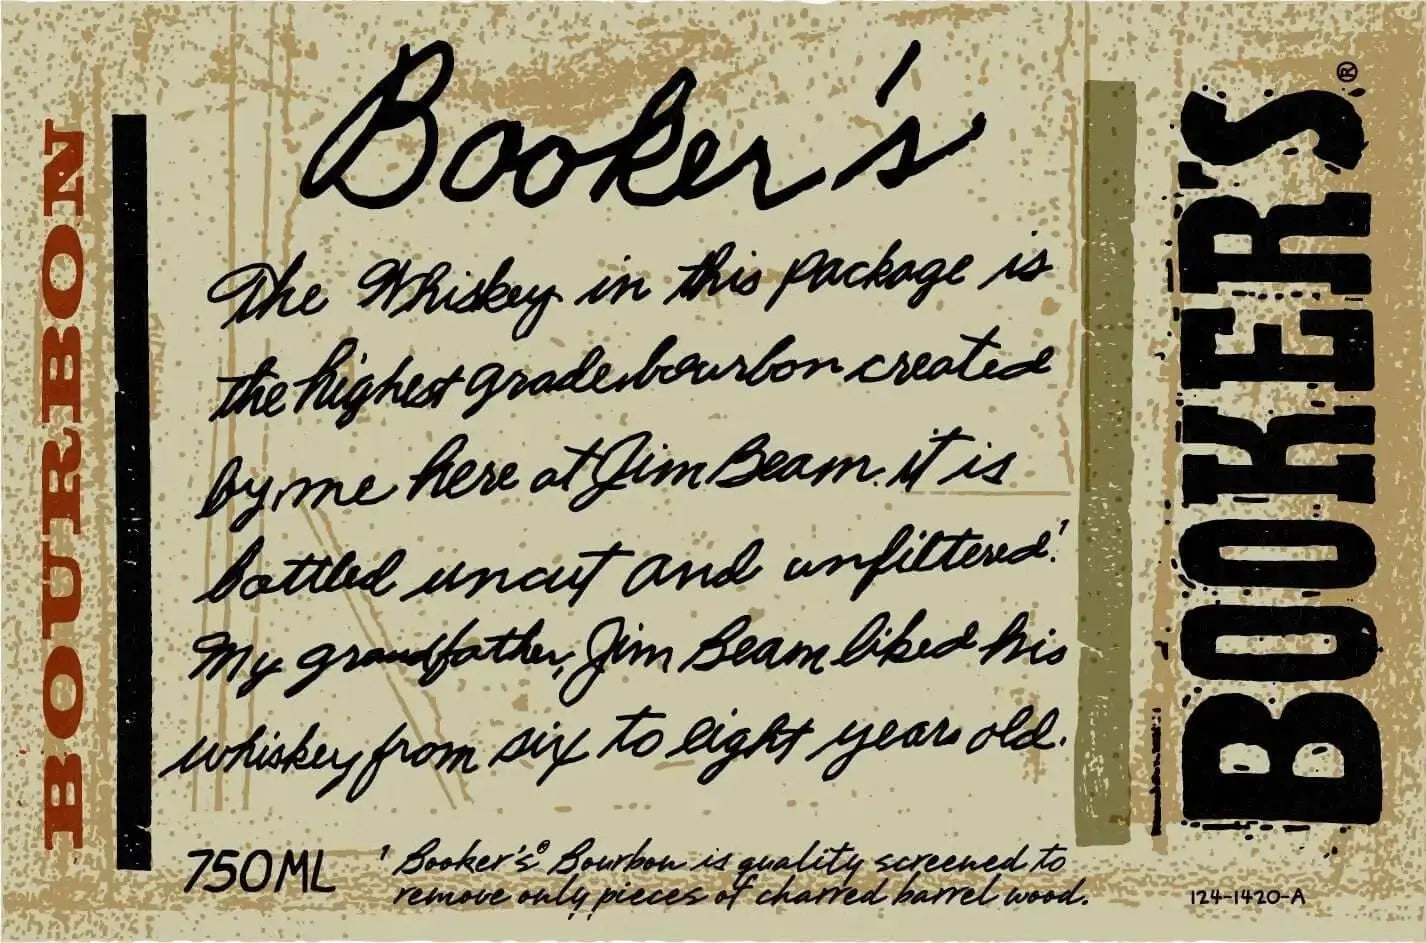 BOURBON
Booker's
The Whiskey in this package is
the highest grade bourbon created
by me here at Jim Beam. it is
bottled uncut and unfiltered.¹
My grandfather, Jim Beam liked his
whiskey from six to eight years old.
750ML
¹ Booker's® Bourbon is quality screened to
remove only pieces of charred barrel wood.
BOOKER'S®
124-1420-A